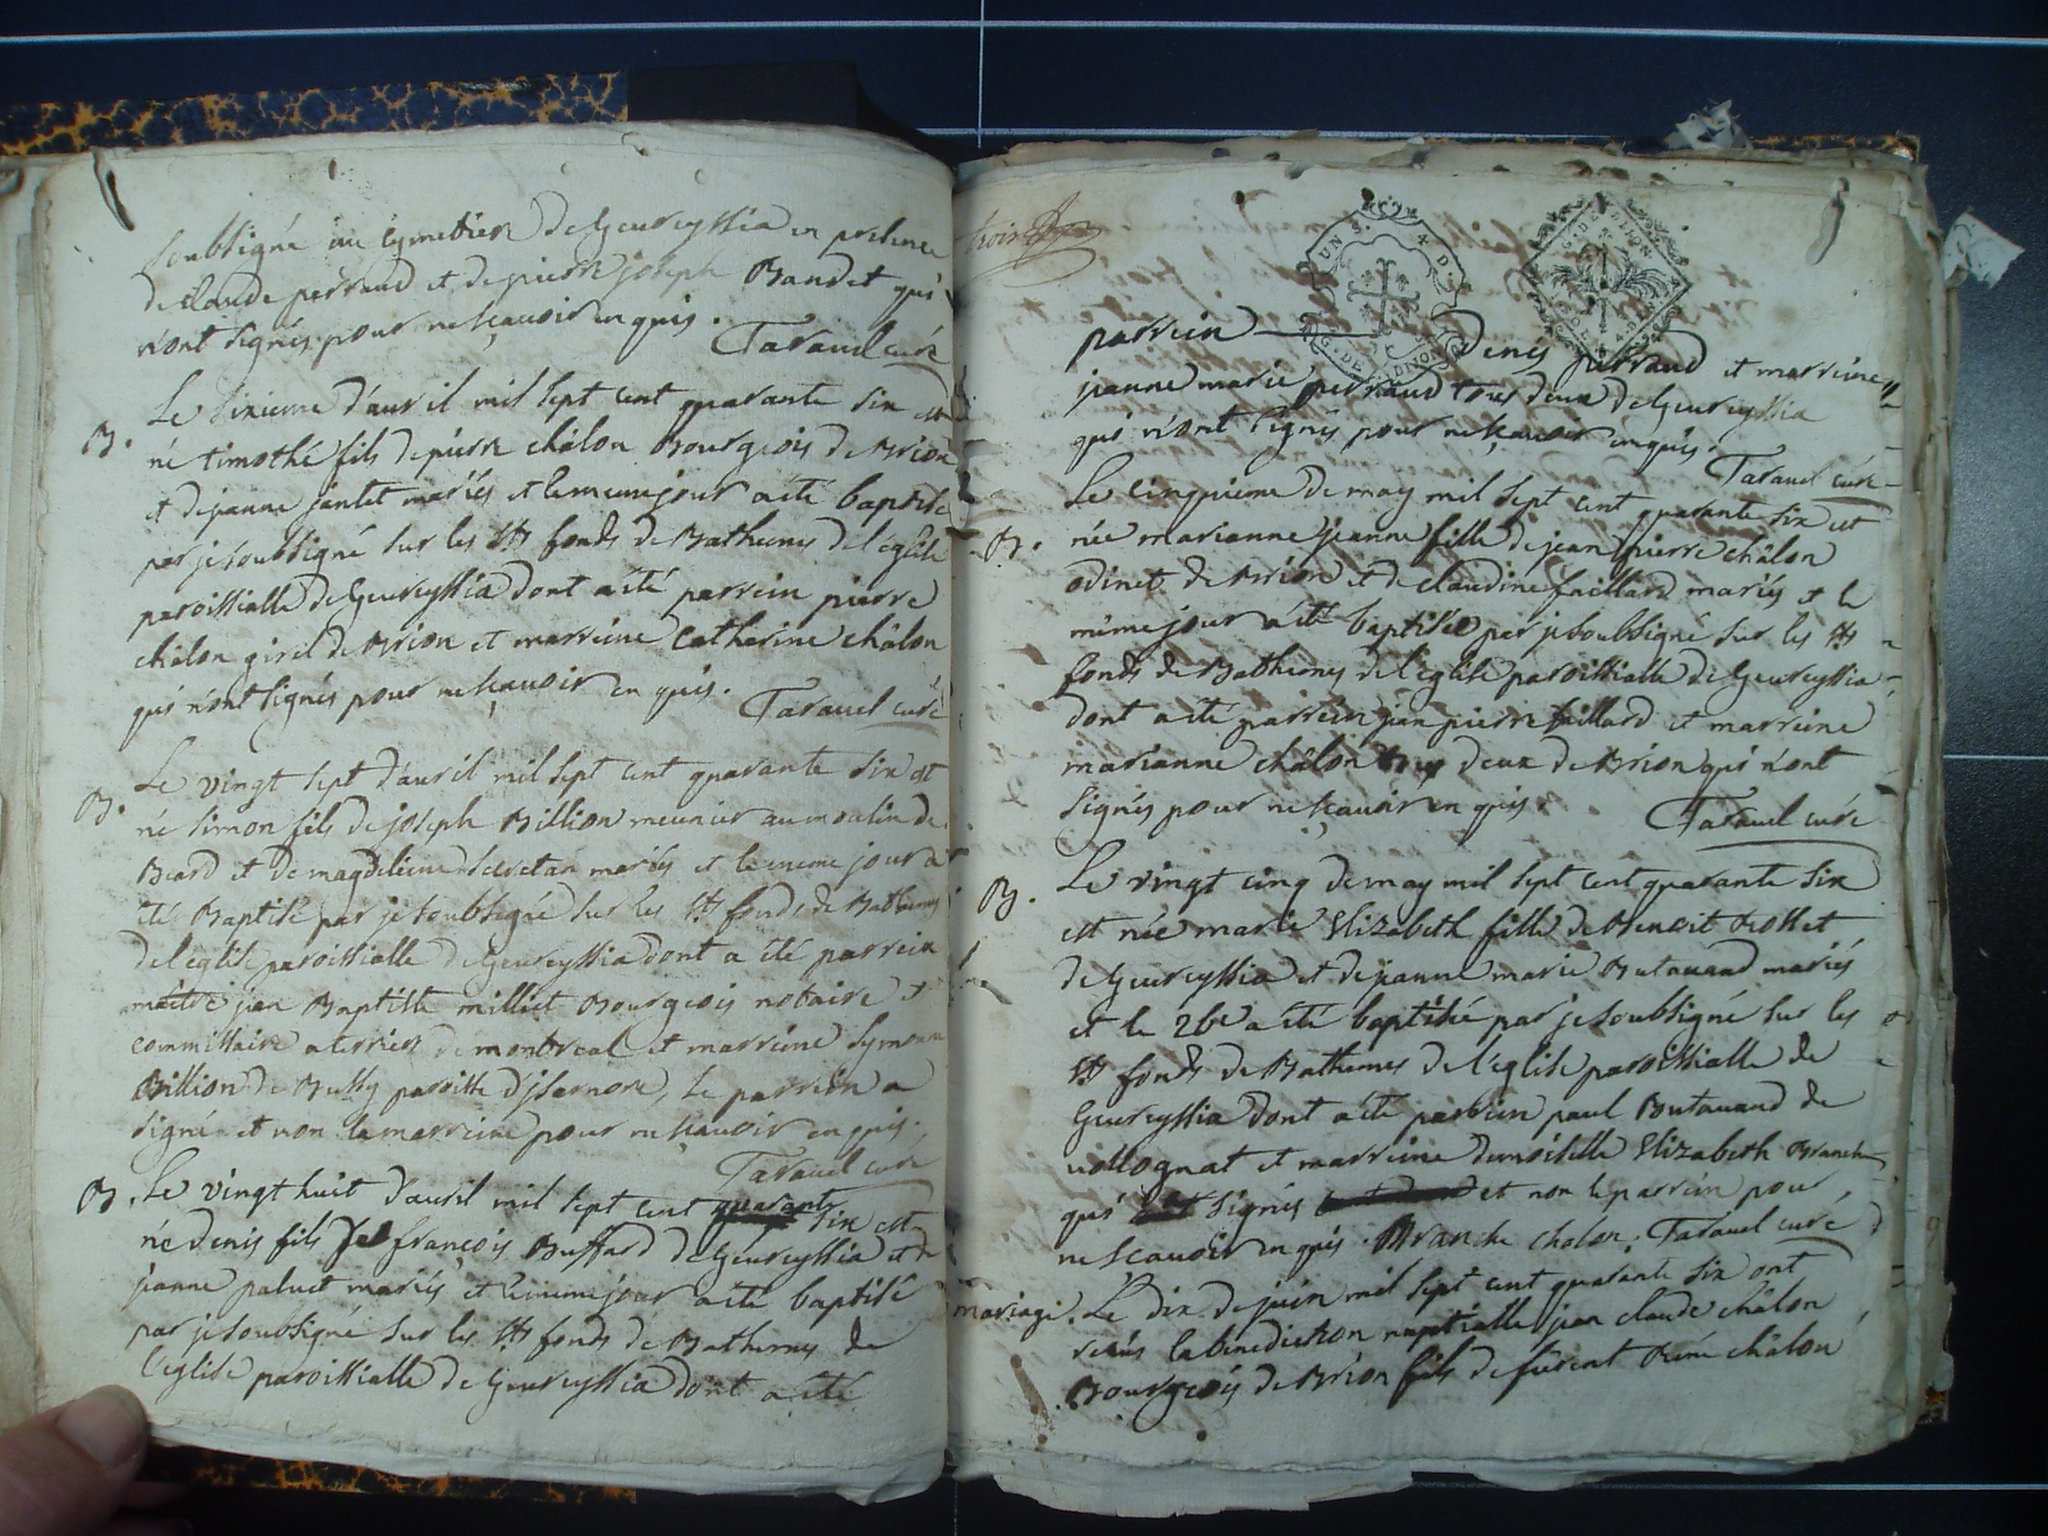 soubsigné au cymetiere de Geureyssia en presence
de Claude perraud et de pierre joseph Bandet qui
n'ont signés pour ne sçavoir en quis.
Taravel curé
B. Le sixieme d'avril mil sept cent quarante six est
né timothé fils de pierre châlon Bourgeois de Brion
et de jeanne jantet mariés et le meme jour a été baptisé
par je soubsigné sur les sts fonds de Bathemes de l'eglise
paroissialle de Geureyssia dont a été parrein pierre
châlon girel de Brion et marreine Catherine châlon
qui n'ont signés pour ne sçavoir en quis.
Taravel curé
B. Le vingt sept d'avril mil sept cent quarante six est
né simon fils de joseph Billion meunier au moulin de
Beard et de magdeleine secretan mariés et le meme jour a
été Baptisé par je soubsigné sur les sts fonds de Bathemes
de l'eglise paroissialle de Geureyssia dont a été parrein
maitre jean Baptiste milliet Bourgeois notaire et
commissaire a terrier de montreal et marreine symonne
Billion de Bussy paroisse d'jsarnore, Le parrein a
signé et non la marreine pour ne sçavoir en quis.
Taravel curé
B. Le vingt huit d'avril mil sept cent quarante six est
né denis fils de françois Buffard de Geureyssia et de
jeanne paluet mariés et le meme jour a été baptisé
par je soubsigné sur les sts fonds de Bathemes de
l'eglise paroissialle de Geureyssia dont a été
trois
UN S. 4 D.
G. DE DIJON
G. DE DIJON
parrein denis perraud et marreine
jeanne marie perraud tous deux de Geureyssia
qui n'ont signés pour ne sçavoir en quis.
Taravel curé
B. Le cinquieme de may mil sept cent quarante six est
née marianne jeanne fille de jean pierre châlon
odinet de Brion et de claudine faillard mariés et le
même jour a été baptisée par je soubsigné sur les sts
fonds de Bathemes de l'eglise paroissialle de Geureyssia
dont a été parrein jean pierre faillard et marreine
marianne châlon tous deux de Brion qui n'ont
signés pour ne sçavoir en quis.
Taravel curé
B. Le vingt cinq de may mil sept cent quarante six
est née marie Elizabeth fille de Benoit Rosset
de Geureyssia et de jeanne marie Butavand mariés
et le 26e a été baptisée par je soubsigné sur les
sts fonds de Bathemes de l'eglise paroissialle de
Geureyssia dont a été parrein paul Butavand de
vollognat et marreine demoiselle Elizabeth Branche
qui signés et non le parrein pour
ne scavoir en quis. Branche châlon. Taravel curé
mariage. Le dix de juin mil sept cent quarante six ont
reçus la benediction nuptialle jean claude châlon
Bourgeois de Brion fils de René châlon